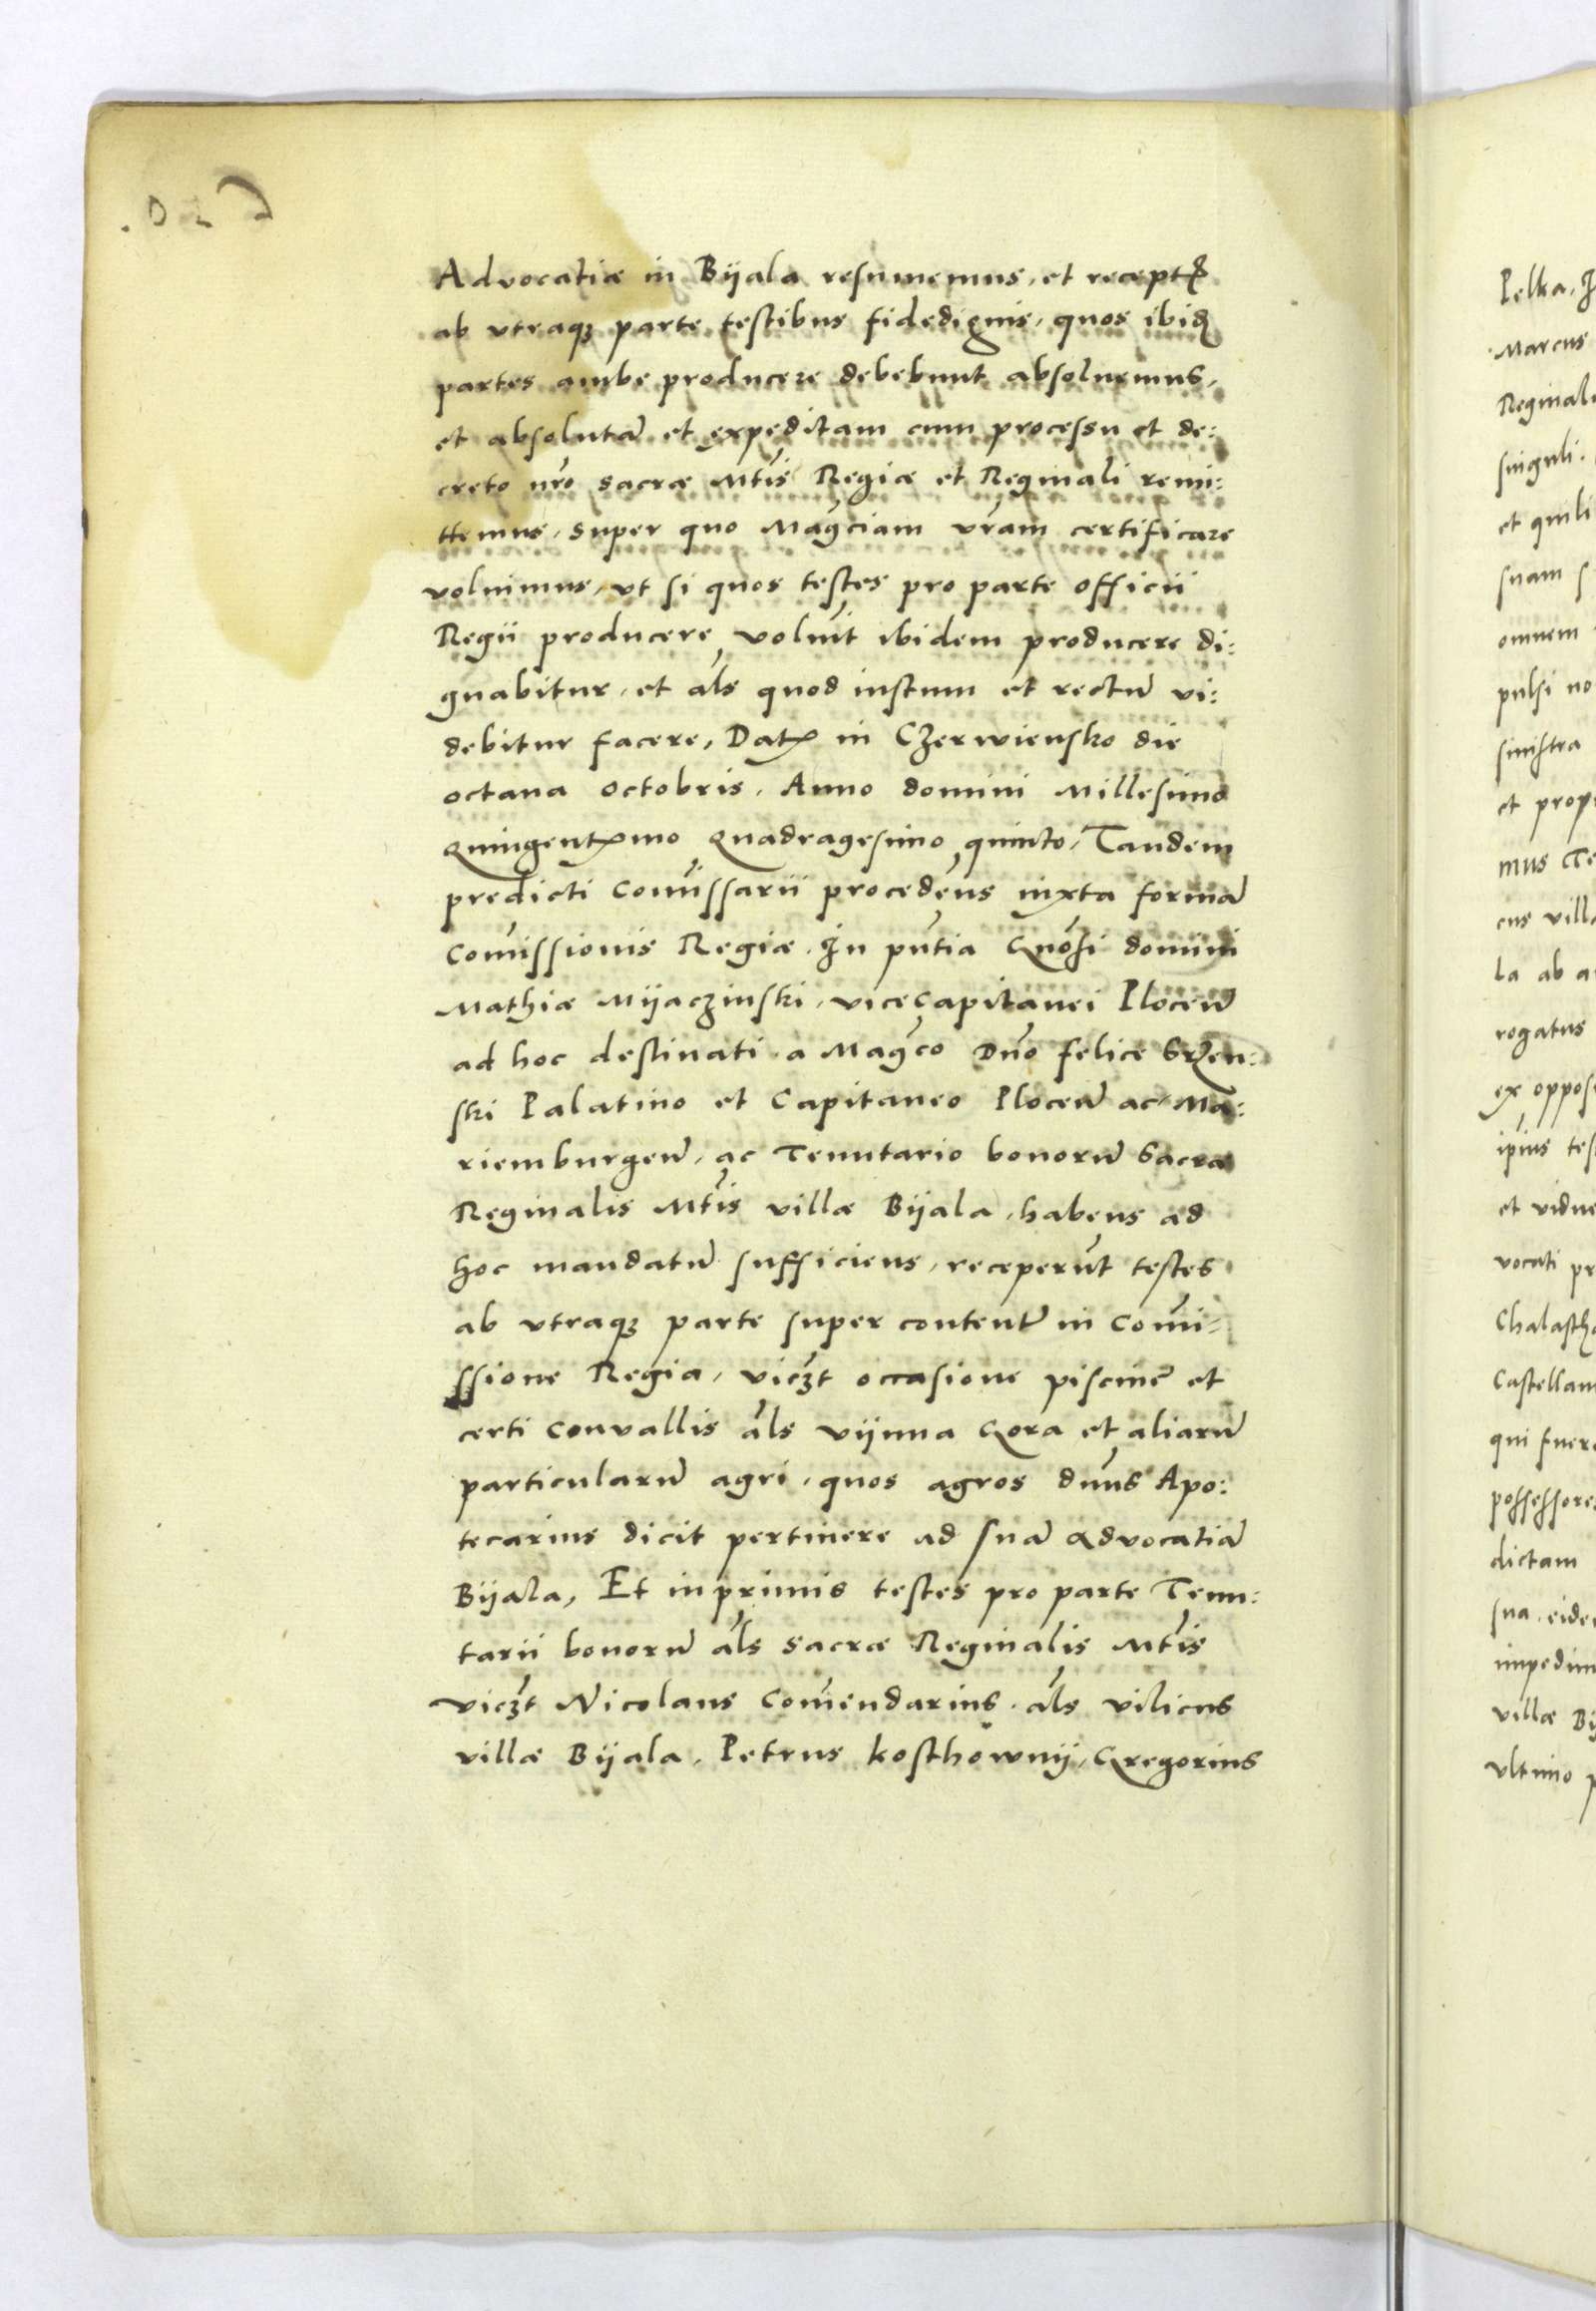 Advocatiæ in Bÿala resumemus, et receptꝭ
ab vtraqꝫ parte testibus fidedignis, quos ibidꝫ
partes ambe producere debebunt absoluemus,
et absolutā et expeditam cum processu et de:
creto nr̄o sacræ Mtis Regiæ et Reginali remi:
ttemus, super quo Mag̃ciam vr̄am certificare
voluimus, vt si quos testes pro parte officii
Regii producere voluit ibidem producere di:
gnabitur, et als quod iustum et rectū vi:
debitur facere, Datꝭ in Czerwiensko die
octaua octobris, Anno domini Millesimo
Quingentꝭmo Quadragesimo quinto, Tandem
predicti Com̄issarii proceden̄s iuxta formā
Com̄issionis Regiæ, In pn̄tia Gn̄osi domini
Mathiæ Mÿaczinski, viceCapitanei Plocen̄
ad hoc destinati a Mag̃co Dn̄o felice Srzen:
ski Palatino et Capitaneo Plocen̄ ac Ma:
riemburgen̄, ac Tenutario bonorū Sacræ
Reginalis Mtis villæ Bÿala, habens ad
hoc mandatū sufficiens, receperūt testes
ab vtraqꝫ parte super content̄ in Com̄i-
ssione Regia, viczt occasione piscine et
certi convallis als vÿnna Gora et aliarū
particularū agri, quos agros dn̄us Apo:
tecarius dicit pertinere ad suā advocatiā
Bÿala, Et inprimis testes pro parte Tenu:
tarii bonorū als sacræ Reginalis Mtis
viczt Nicolaus Com̄endarius als vilicus
villæ Bÿala, Petrus kosthownÿ, Gregorius
Pelka, J
Marcus
Reginal
singuli
et quili
suam s
omnem
pulsi no
sinistra
et prop
mus Te
cus vill
la ab a
rogatus
ex oppos
ip̄ius tes
et vidue
vocati pr
Chalasth
Castellan
qui fuer
possessore
dictam
sua, eide
impedim
villæ Bÿ
vltimo p